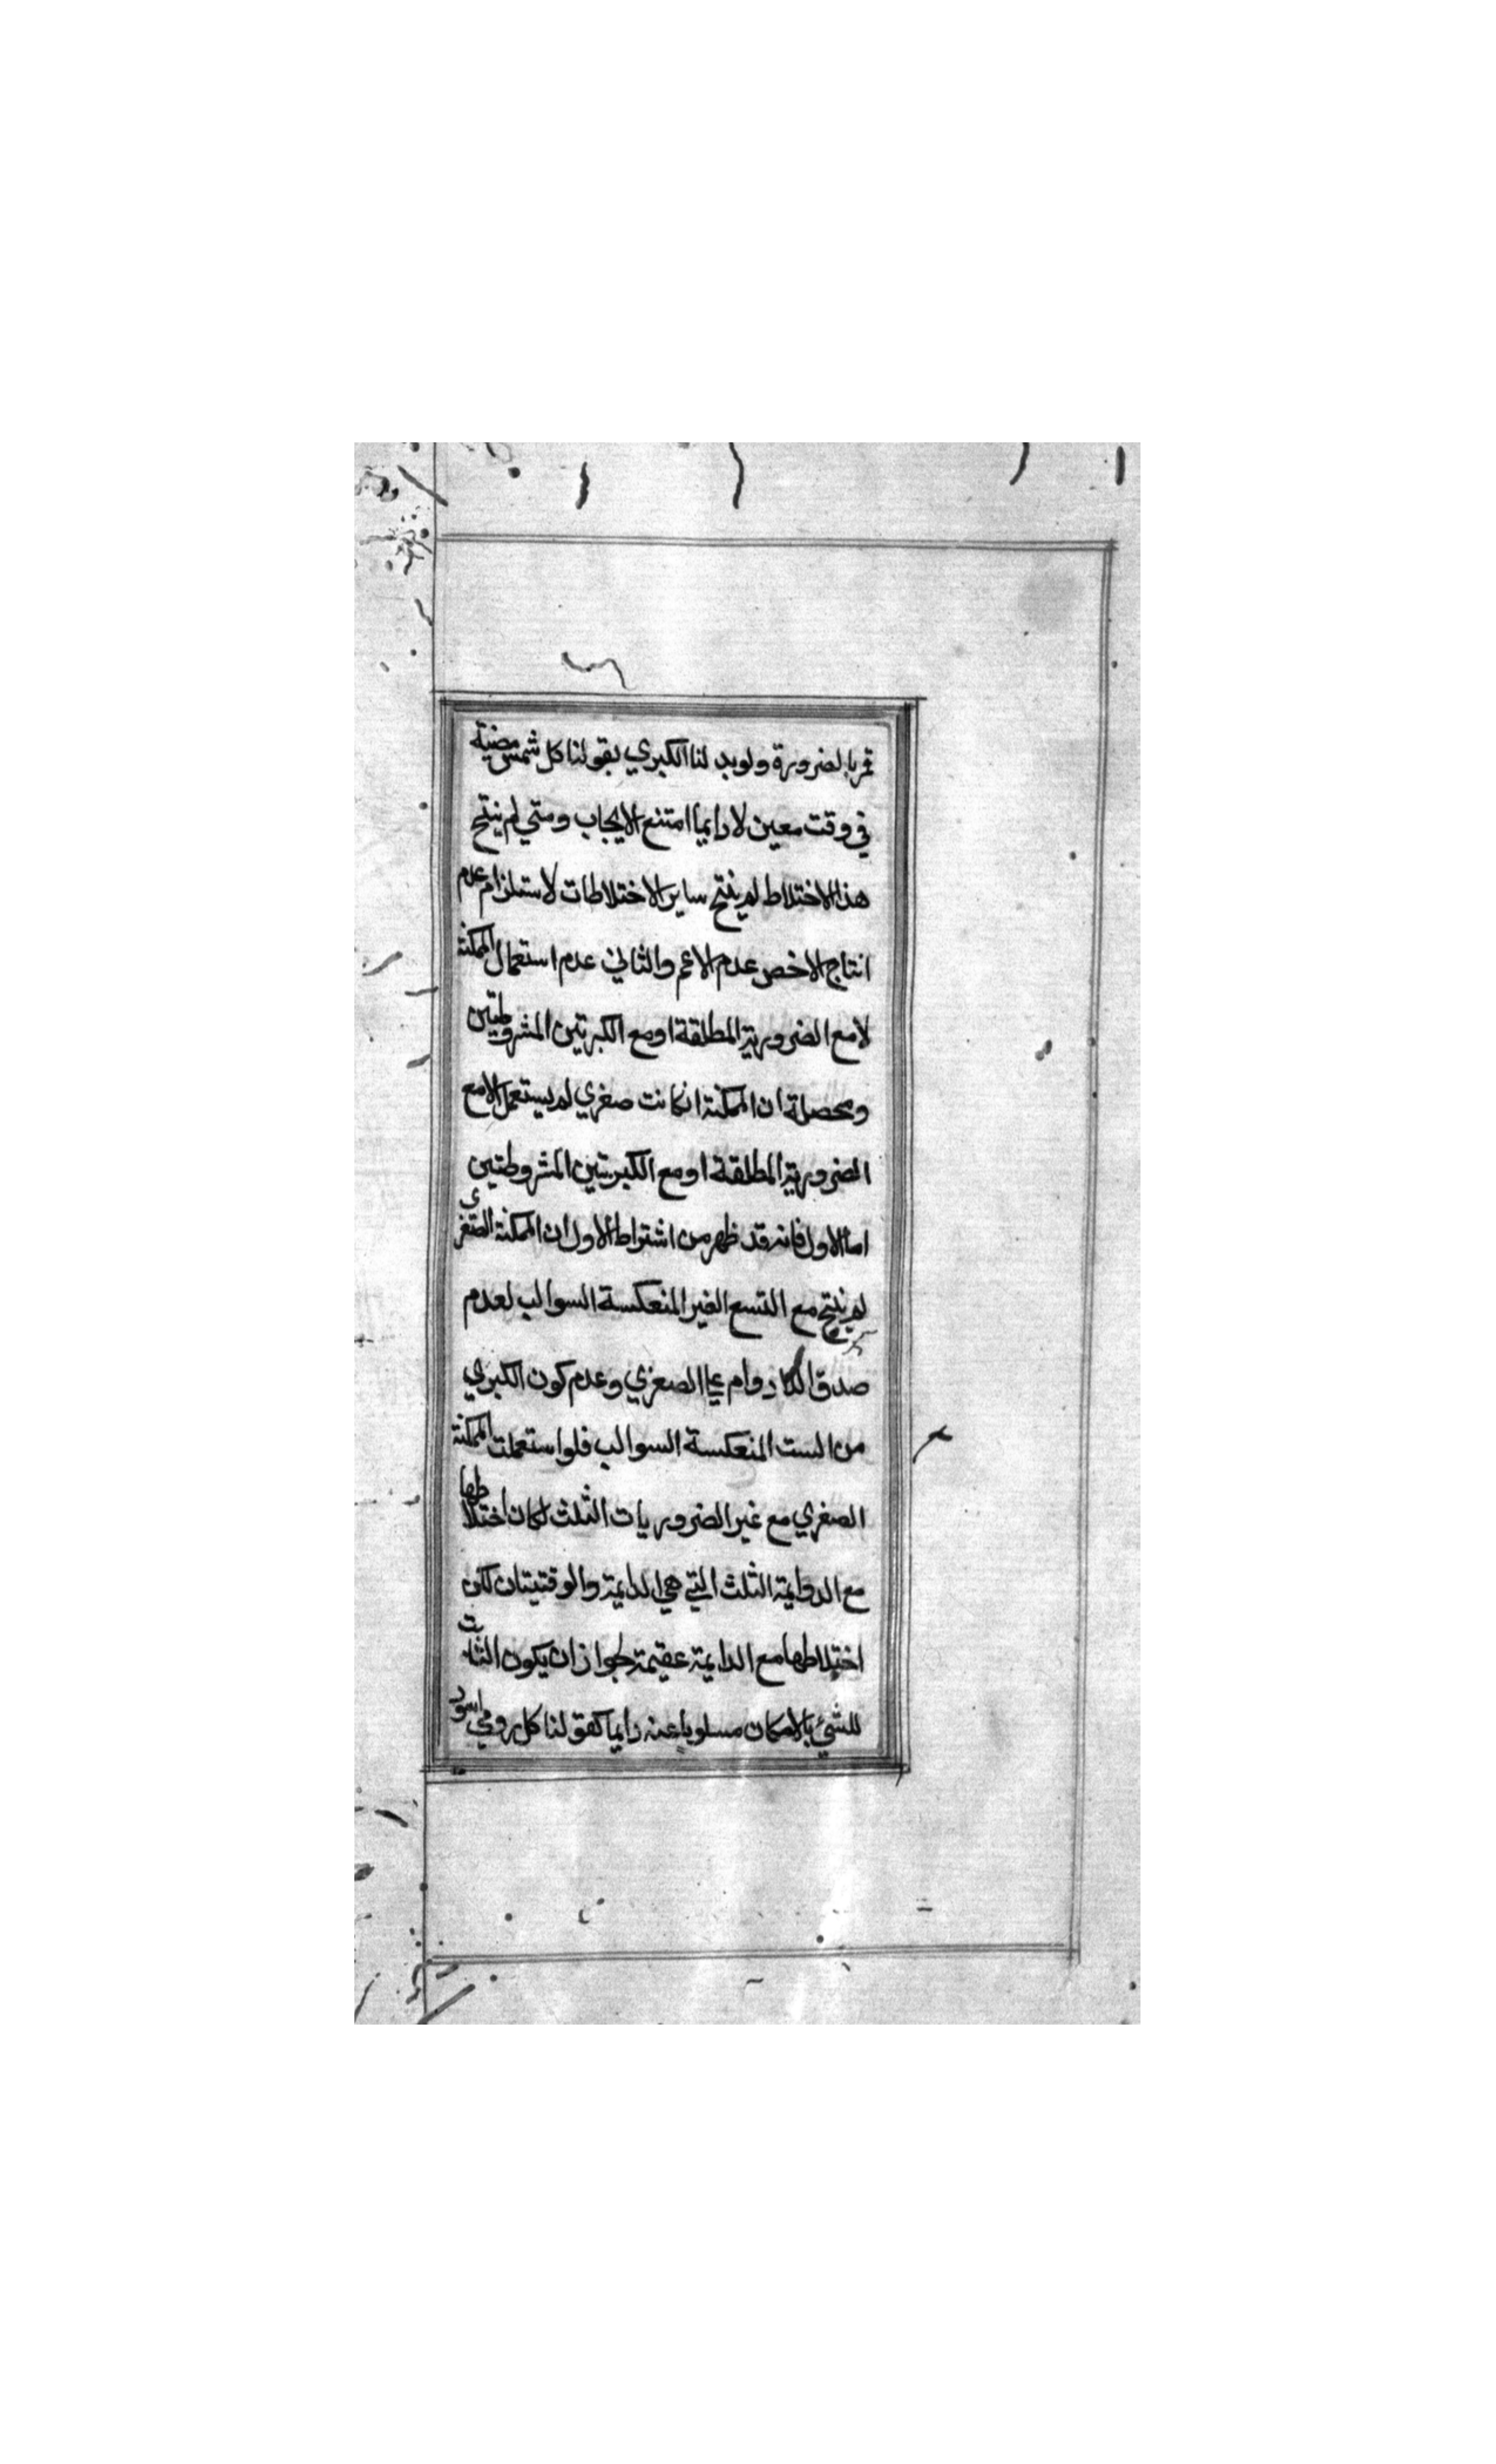 قمر بالضرورة ولو بدلنا الكبري بقولنا كل شمس مضيئة
في وقت معين لا دايما امتنع الايجاب ومتي لم ينتج
هذا الاختلاط لم ينتج ساير الاختلاطات لاستلزام عدم
انتاج الاخص عدم الاعم والثاني عدم استعمال الممكنة
لا مع الضرورية المطلقة او مع الكبرتين المشروطتين
ومحصلة ان الممكنة انكانت صغري لم يستعمل الا مع
الضرورية المطلقة او مع الكبريتين المشروطتين
اما الاول فانه قد ظهر من اشتراط الاول ان الممكنة الصغري
لم ينتج مع التسع الغير المنعكسة السوالب لعدم
صدق الدوام علي الصغري وعدم كون الكبري
من الست المنعكسة السوالب فلو استعملت الممكنة
الصغري مع غير الضروريات الثلث لكان اختلاطها
مع الدوايمة الثلث التي هي الدايمة والوقتيتان لكن
اختلاطها مع الدايمة عقيمة لجواز ان يكون الثابت
للشيء بالامكان مسلوبا عنه دايما كقولنا كل رومي اسود